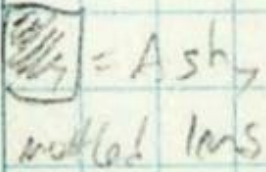 = Ashy
mottled lens